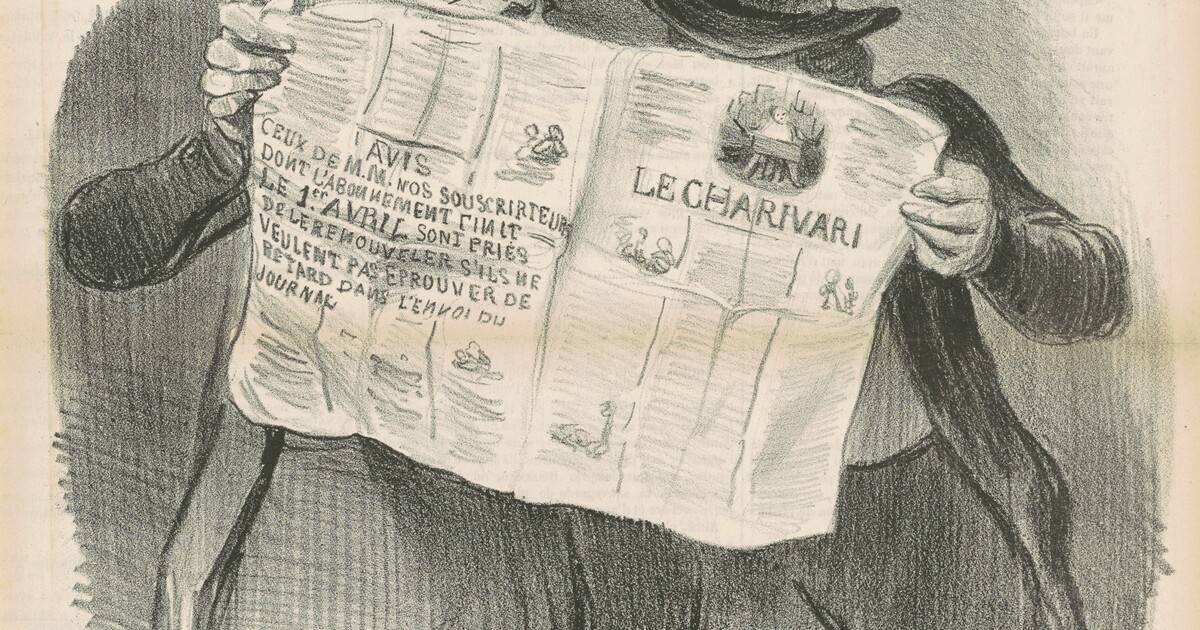 AVIS
CEUX DE M.M. NOS SOUSCRIPTEUR
DONT L'ABONNEMENT FINIT
LE 1ER AVRIL SONT PRIÉS
DE LE RENOUVELER S'ILS NE
VEULENT PAS ÉPROUVER DE
RETARD DANS L'ENVOI DU
JOURNAL
LE CHARIVARI